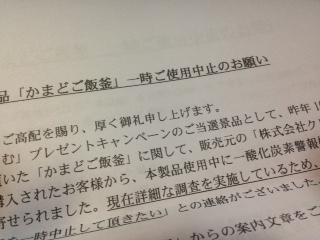 品「かまどご飯釜」一時ご使用中止のお願い
ご高配を賜り、厚く御礼申し上げます。
む」プレゼントキャンペーンのご当選景品として、昨年1
いた「かまどご飯釜」に関して、販売元の「株式会社ク
購入されたお客様から、本製品使用中に一酸化炭素警報
寄せられました。現在詳細な調査を実施しているため、
を一時中止して頂きたい」との連絡がございました。
からの案内文章をご